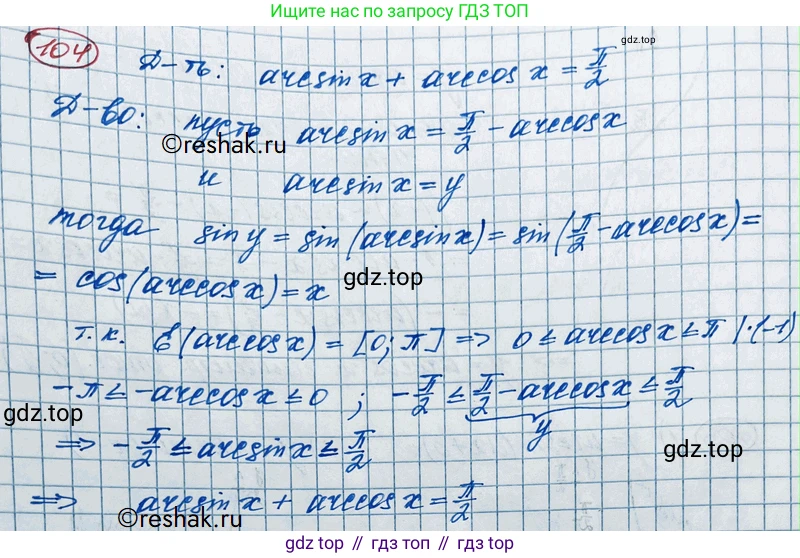 Ищите нас по запросу ГДЗ ТОП
104
gdz.top
Д-ть: arcsin x + arccos x = π/2
Д-во: пусть arcsin x = π/2 - arccos x
©reshak.ru
и arcsin x = y
тогда sin y = sin (arcsin x) = sin (π/2 - arccos x) =
= cos (arccos x) = x
gdz.top
т.к. E (arccos x) = [0; π] => 0 ≤ arccos x ≤ π | ·(-1)
-π ≤ -arccos x ≤ 0 ; -π/2 ≤ π/2 - arccos x ≤ π/2
©reshak.ru
y
gdz.top
=> -π/2 ≤ arcsin x ≤ π/2
=> arcsin x + arccos x = π/2
©reshak.ru
gdz.top // гдз.топ // gdz.top // гдз.топ